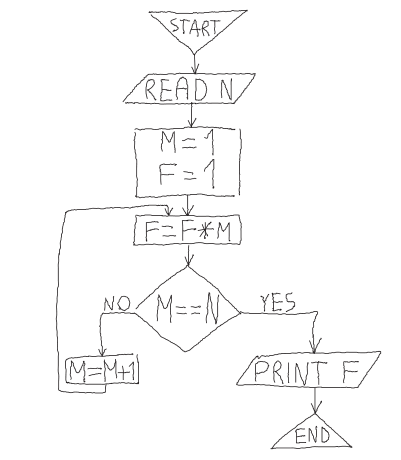 START
READ N
M=1
F=1
F=F*M
M==N
NO
YES
M=M+1
PRINT F
END